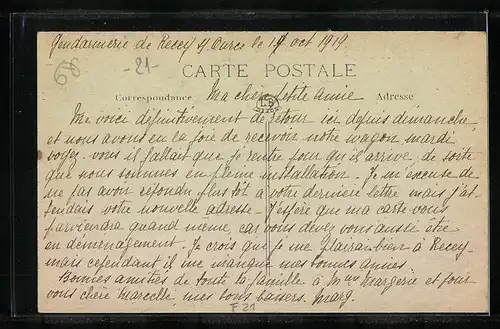 Gendarmerie de Recey s/ Ource le 17 oct 1919.
-21-
CARTE POSTALE
Correspondance
Adresse
Ma chère petite amie
Me voici définitivement de retour ici depuis dimanche,
et nous avons eu la joie de recevoir notre wagon mardi
voyez-vous il fallait que je rentre pour qu'il arrive, de sorte
que nous sommes en pleine installation. Je m'excuse de
ne pas avoir répondu plus tôt à votre dernière lettre mais j'at-
tendais votre nouvelle adresse. J'espère que ma carte vous
parviendra quand même, car vous devez vous aussi être
en déménagement. Je crois que je me plairai bien à Recey
mais cependant il me manque mes bonnes amies.
Bonnes amitiés de toute la famille à Mme Margerie et pour
vous chère Marcelle, mes bons baisers. Marg.
F 21